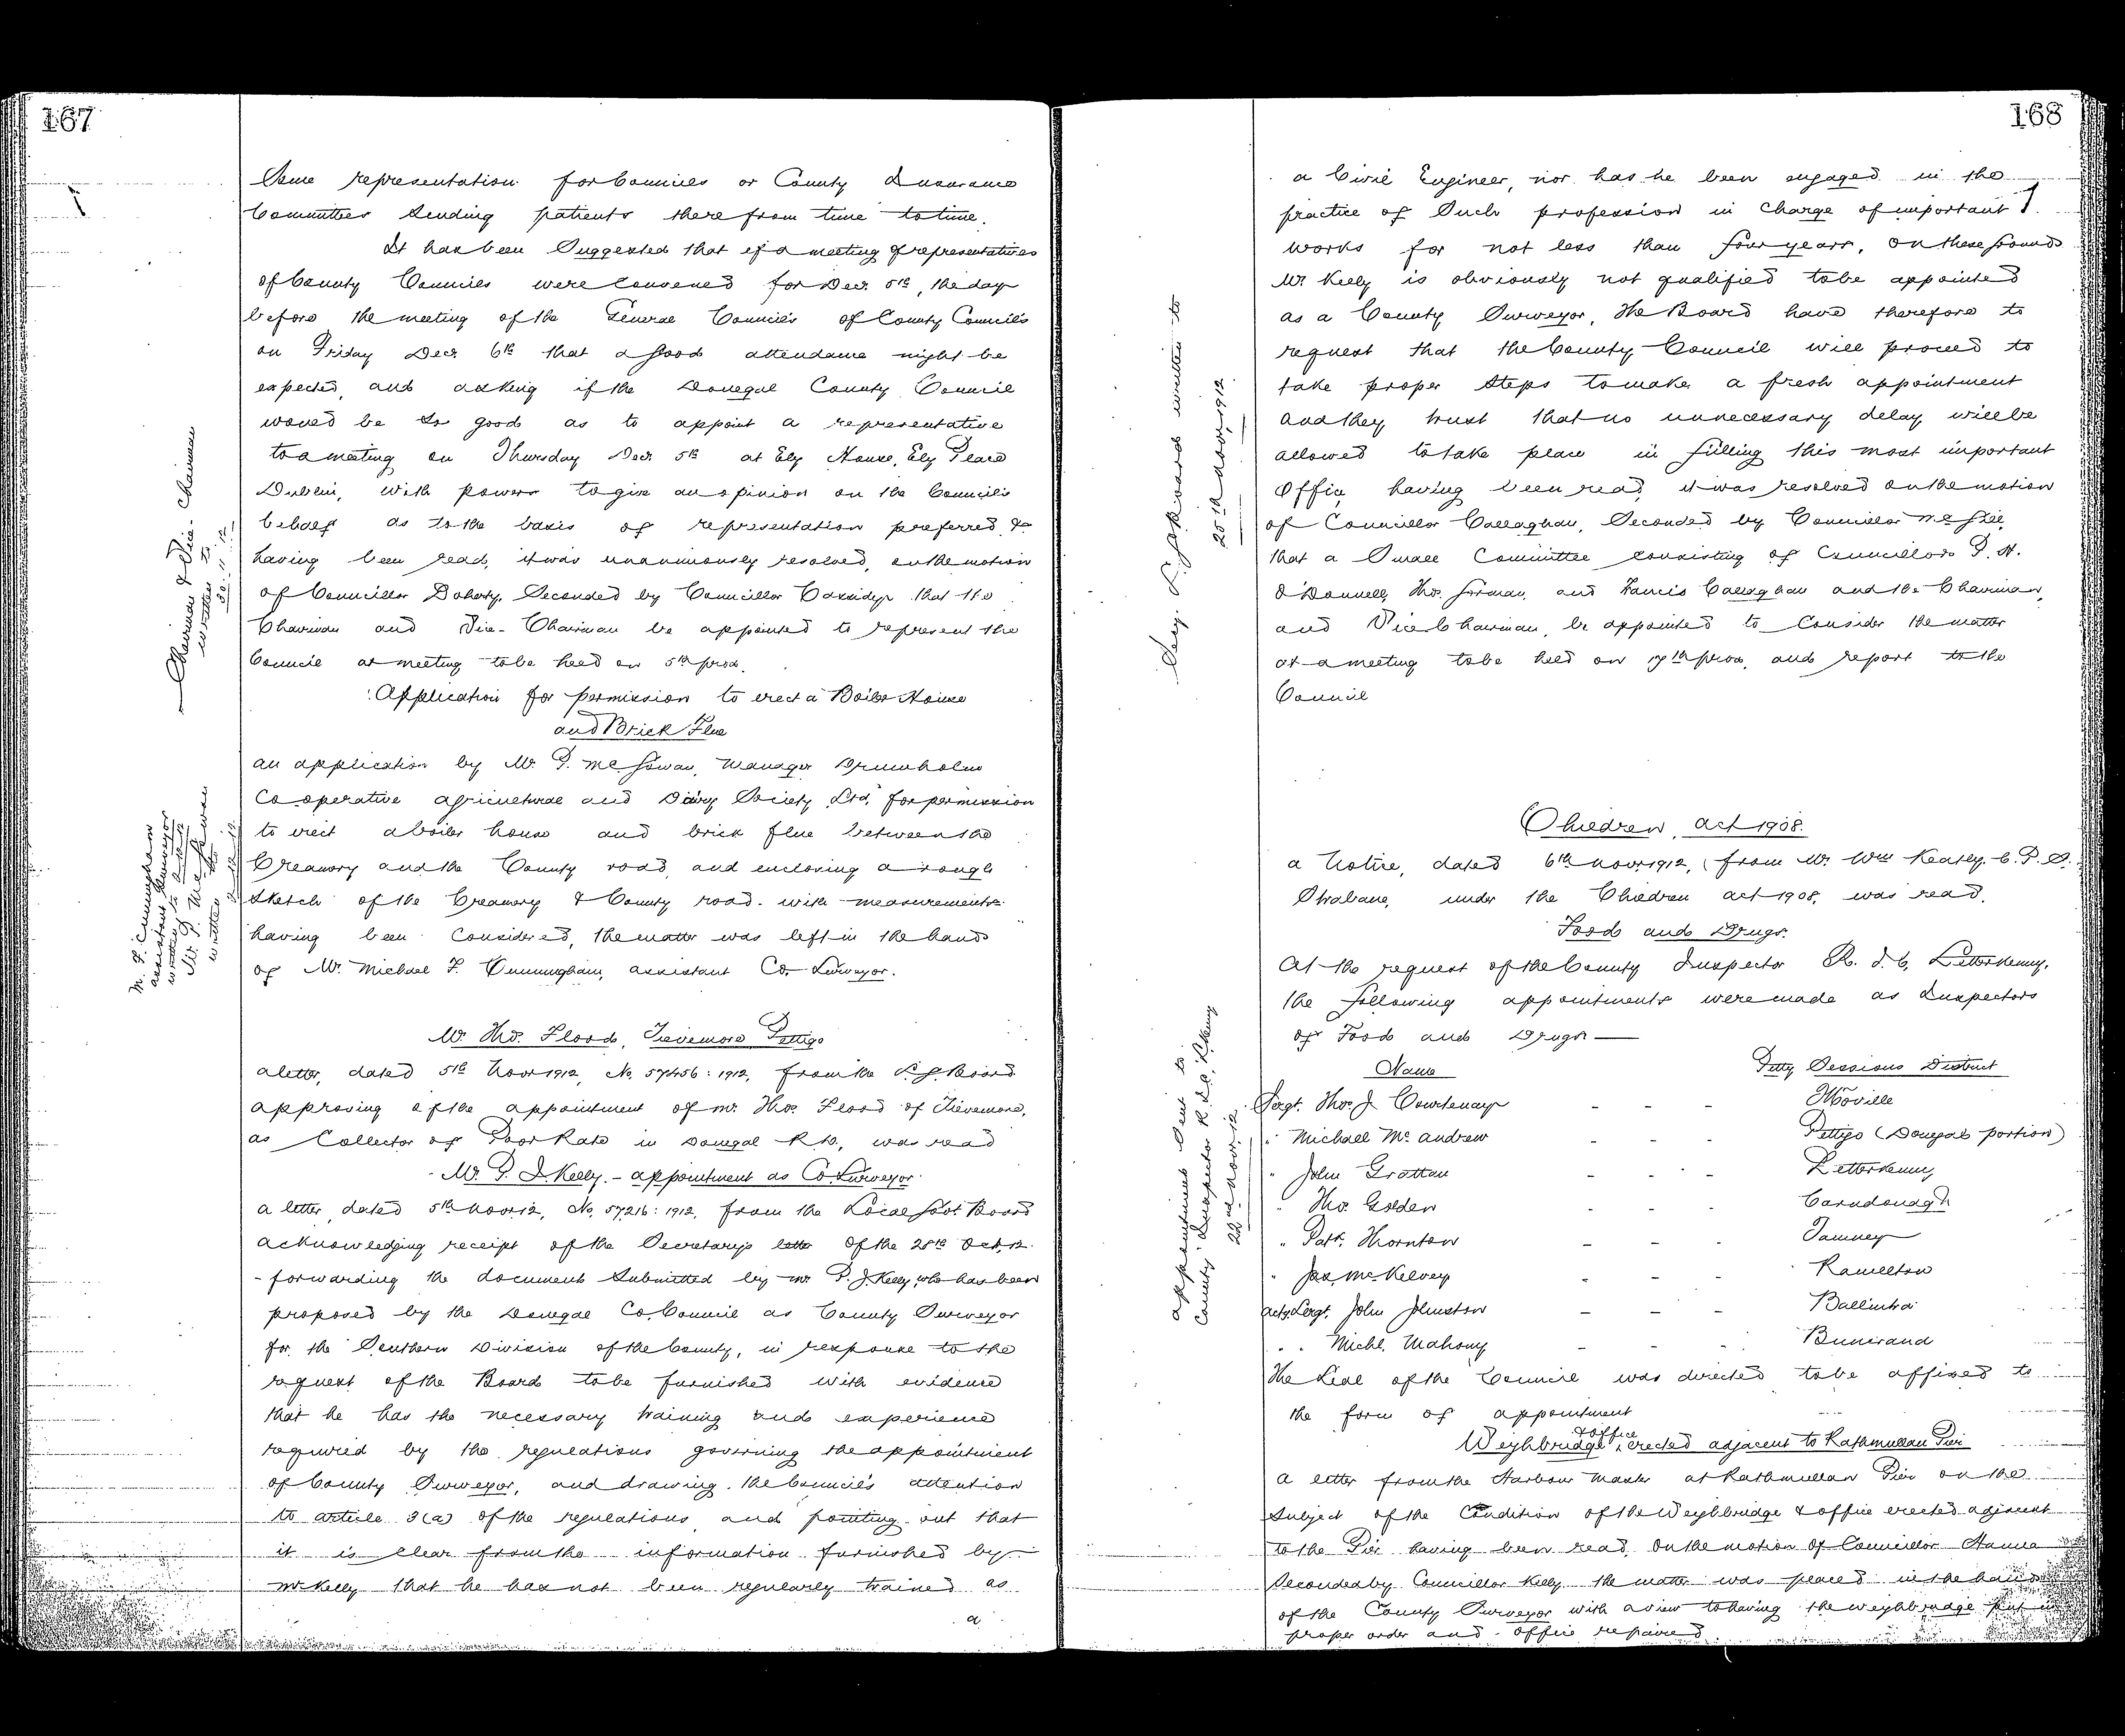 167
Some representation for Councils or County Insurance
Committees sending patients there from time to time.
It has been suggested that if a meeting of representatives
of County Councils were convened for Decr. 5th, the day
before the meeting of the General Council of County Councils
on Friday Decr 6th that a good attendance might be
expected, and asking if the Donegal County Council
would be so good as to appoint a representative
to a meeting on Thursday Decr 5th at Ely House, Ely Place
Dublin, with power to give an opinion on the Council's
behalf as to the basis of representation preferred, &c
having been read, it was unanimously resolved, on the motion
of Councillor Doherty, Seconded by Councillor Cassidy that the
Chairman and Vice-Chairman be appointed to represent the
Council at meeting to be held on 5th prox.
Chairman & Vice-Chairman
written to
30.11.12.
Application for permission to erect a Boiler House
and Brick Flue
an application by Mr. P. McGowan, Manager Drumholm
Co-operative agricultural and Dairy Society Ltd, for permission
to erect a boiler house and brick flue between the
Creamery and the County road, and enclosing a rough
sketch of the Creamery & County road. with measurements
having been considered, the matter was left in the hands
of Mr. Michael F. Cunningham, assistant Co. Surveyor.
M. F. Cunningham
assistant Surveyor
written to
Mr. P. McGowan
written to
Mr. Thos. Flood, Tievemore Pettigo
a letter, dated 5th Novr 1912, No. 57456: 1912, from the L.G. Board
approving of the appointment of Mr. Thos. Flood of Tievemore,
as Collector of Poor Rate in Donegal R.D., was read
Mr. P. J. Kelly. - appointment as Co. Surveyor
a letter, dated 5th Novr 12, No. 57,216: 1912, from the Local Govt. Board
acknowledging receipt of the Secretary's letter of the 28th Oct, 12.
- forwarding the documents submitted by Mr P. J. Kelly, who has been
proposed by the Donegal Co. Council as County Surveyor
for the Southern Division of the County, in response to the
request of the Board to be furnished with evidence
that he has the necessary training and experience
required by the regulations governing the appointment
of County Surveyor, and drawing the Council's attention
to article 3(a) of the regulations and pointing out that
it is clear from the information furnished by
Mr Kelly that he has not been regularly trained as
a
168
a Civil Engineer, nor has he been engaged in the
practice of such profession in charge of important
works for not less than four years. On these grounds
Mr. Kelly is obviously not qualified to be appointed
as a County Surveyor, The Board have therefore to
request that the County Council will proceed to
take proper steps to make a fresh appointment
and they trust that no unnecessary delay will be
allowed to take place in filling this most important
Office, having been read, it was resolved on the motion
of Councillor Callaghan, Seconded by Councillor McGill
that a Small Committee consisting of Councillors P. H.
O'Donnell, Thos. Gorman, and Francis Callaghan and the Chairman,
and Vice Chairman, be appointed to consider the matter
at a meeting to be held on 17th prox, and report to the
Council
Secy. L. G. Board written to
25th Novr 1912.
Children Act 1908.
a Notice, dated 6th Novr 1912, from Mr. Wm Keatley. C.P.S.
Strabane, under the Children Act 1908, was read.
Food and Drugs.
At the request of the County Inspector R. I. C, Letterkenny,
the following appointments were made as Inspectors
of Food and Drugs —
Name Petty Sessions District
Sergt. Thos. J Courtenay - - - Moville
" Michael McAndrew - - - Pettigo (Donegal portion)
" John Grattan - - - Letterkenny
" Thos. Golden - - - Carndonagh
" Patk. Thornton - - - Tamney
" Jas, McKelvey - - - Ramelton
Actg. Sergt. John Johnston - - - Ballintra
" " Michl. Mahony - - - Buncrana
The Seal of the Council was directed to be affixed to
the form of appointment
appointments sent to
County Inspector R.I.C, L'Kenny
22nd Novr. 12
Weighbridge & Office erected adjacent to Rathmullan Pier
a letter from the Harbour Master at Rathmullan Pier on the
subject of the condition of the Weighbridge & office erected adjacent
to the Pier having been read, on the motion of Councillor Hanna
Seconded by Councillor Kelly the matter was placed in the hands
of the County Surveyor with a view to having the weighbridge put in
proper order and office repaired.